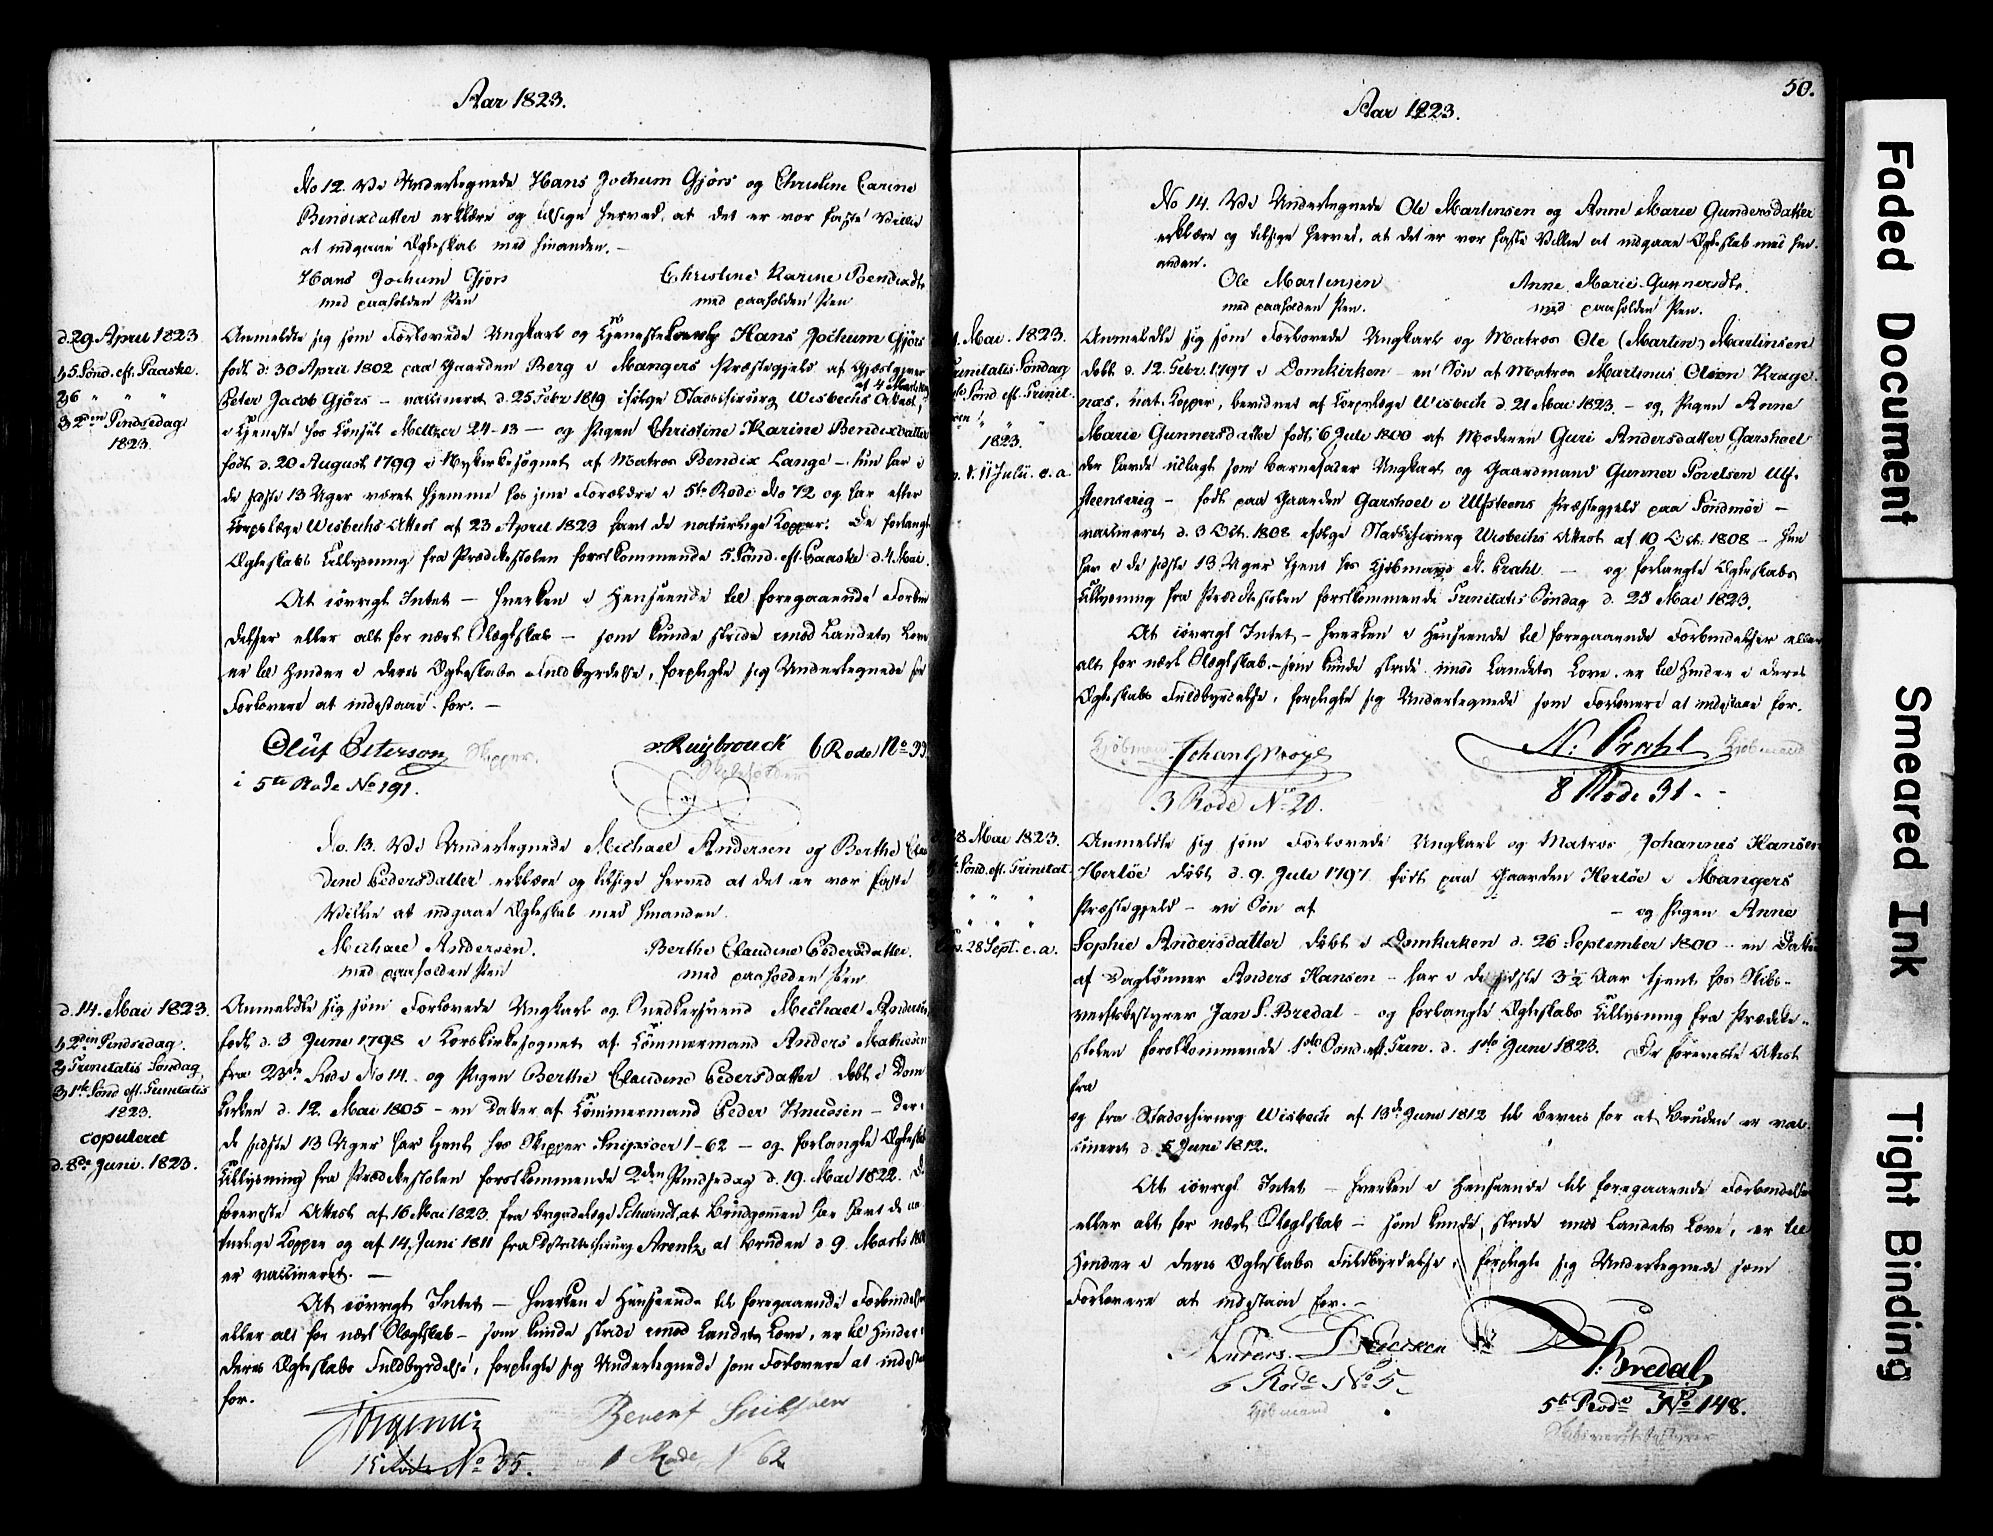 Aar 1823.
No 12. Vi Undertegnede Hans Jochum Gjörs og Christine Carine
Bendixdatter erklære og tilsige herved, at det er vor faste Villie
at indgaae Ægteskab med hinanden. –
Hans Jochum Gjörs Christine Karine Bendixdtr
med paaholden Pen med paaholden Pen
d. 29 April 1823
1, 5 Sønd. eft. Paaske.
2, 6 " " "
3, 2den Pindsedag
1823.
Anmeldte sig som Forlovede Ungkarl og Hans Jochum Gjörs
født d. 30 April 1802 paa Gaarden Berg i Mangers Præstegjeld af
Peter Jacob Gjörs – vaccineret d. 25 Febr 1819 ifölge Stadschirurg Wisbechs Attest,
i Tjeneste hos Consul Meltzer 24-13 – og Pigen Christine Karine Bendixdatter
født d. 20 August 1799 i Nykirkesognet af Matros Bendix Lange – hun har i
de sidste 13 Uger været hjemme hos sine Forældre i 5te Rode No 72 og har efter
Corpslæge Wisbechs Attest af 23 April 1823 havt de naturlige Kopper. De forlangte
Ægteskabs Tillysning fra Prædikestolen forstkommende 5 Sønd. eft. Paaske d. 4 Mai.
At iövrigt Intet – hverken i Henseende til foregaaende Forbin
delser eller alt for nært Slægtskab – som kunde stride imod Landets Love
er til Hinder i deres Ægteskabs Fuldbyrdelse, forpligte sig Undertegnede som
Forlovere at indestaae for. –
Oluf Peterson Skipper. v. Ruijbrouck 6 Rode No 33
i 5te Rode No 191.
No. 13. Vi Undertegnede Michael Andersen og Berthe Clau
dine Pedersdatter erklære og tilsige herved at det er vor faste
Villie at indgaae Ægteskab med hinanden.
Michael Andersen. Berthe Claudine Pedersdatter.
med paaholden Pen med paaholden Pen
d. 14. Mai 1823.
1, 2den Pindsedag.
2, Trinitatis Søndag
3, 1ste Sønd eft. Trinitatis
1823.
copuleret
d. 8de Juni. 1823.
Anmeldte sig som Forlovede Ungkarl og Snedkersvend Michael Andersen
født d. 3 Junii 1798 i Korskirkesognet af Tömmermand Anders Mathiesen
fra 23de Rode No 14. og Pigen Berthe Claudine Pedersdatter döbt i Dom
kirken d. 12. Mai 1805 – en Datter af Tömmermand Peder Knudsen – der i
de sidste 13 Uger har tjent hos Skipper 1-62 – og forlangte Ægteskabs
Tillysning fra Prædikestolen forstkommende 2den Pindsedag d. 19. Mai 1822. De
foreviste Attest af 16 Mai 1823. fra Brigadelæge Schwindt, at Brudgommen har havt de na
turlige Kopper og af 14. Juni 1811 fra Districtschirurg Arentz at Bruden d 9. Marts
er vaccineret. –
At iövrigt Intet – hverken i Henseende til foregaaende Forbindelser
eller alt for nært Slægtskab – som kunde stride imod Landets Love, er til Hinder i
deres Ægteskabs Fuldbyrdelse, forpligte sig Undertegnede som Forlovere at indestaae
for.
15 Rode No 35. 1 Rode N 62
50.
Aar 1823.
No 14. Vi Undertegnede Ole Martinsen og Anne Marie Gundersdatter
erklære og tilsige herved, at det er vor faste Villie at indgaae Ægteskab med hin
anden.
Ole Martinsen Anne Marie Gunnersdtr.
med paaholden Pen. med paaholden Pen.
Mai. 1823.
Trinitatis Søndag
Sønd eft. Trinit.
1823.
11 Julii. e. a.
Anmeldte sig som Forlovede Ungkarl og Matros Ole (Martin) Martinsen
döbt d. 12. Febr. 1797 i Domkirken – en Sön af Matros Martinus Olsen Krage
næs. nat. Kopper, bevidnet af Corpslæge Wisbech d. 21 Mai 1823. – og Pigen Anne
Marie Gunnersdatter født 6 Julii 1800 af Moderen Guri Andersdatter Garshoel
der havde udlagt som Barnefader Ungkarl og Gaardmand Gunner Povelsen Ulf-
steensvig – født paa Gaarden Garshoel i Ulfsteens Præstegjeld paa Söndmör –
vaccineret d. 3 Oct. 1808 ifölge Stadschirurg Wisbechs Attest af 10 Oct. 1808 – hun
har i de sidste 13 Uger tjent hos Kjöbmand N. Prahl. – og forlangte Ægteskabs
Tillysning fra Prædikestolen forstkommende Trinitatis Söndag d. 25 Mai 1823.
At iövrigt Intet – hverken i Henseende til foregaaende Forbindelser eller
alt for nært Slægtskab – som kunde stride imod Landets Love, er til Hinder i deres
Ægteskabs Fuldbyrdelse, forpligte sig Undertegnede som Forlovere at indestaae for.
Kjöbmand N. Prahl Kjöbmand
3 Rode No 20. 8 Rode 31.
28 Mai 1823.
Sønd. eft. Trinitat.
" " "
" " "
28 Sept. e. a.
Anmeldte sig som Forlovede Ungkarl og Matros Johannes Hansen
Herlöe döbt d. 9. Julii 1797 født paa Gaarden Herlöe i Mangers
Præstegjeld – en Sön af – og Pigen Anne
Sophie Andersdatter döbt i Domkirken d. 26 September 1800 – en Datter
af Daglönner Anders Hansen – har i de sidste 3½ Aar tjent hos Skibs-
værftsbestyrer Jan S. Bredal – og forlangte Ægteskabs Tillysning fra Prædike-
stolen forstkommende 1ste Sönd. eft. Trin. d. 1ste Junii 1823. De foreviste Attest
fra
og fra Stadschirurg Wisbech af 13de Junii 1812 til Beviis for at Bruden er vac
cineret d. 5 Junii 1812.
At iövrigt Intet – hverken i Henseende til foregaaende Forbindelser
eller alt for nært Slægtskab – som kunde stride mod Landets Love, er til
Hinder i deres Ægteskabs Fuldbyrdelse, forpligte sig Undertegnede som
Forlovere at indestaae for. –
Anders Bredal
6 Rode No 5. 5te Rode No 148.
Kjöbmand Skibsværftsbestyrer
Faded Document
Smeared Ink
Tight Binding